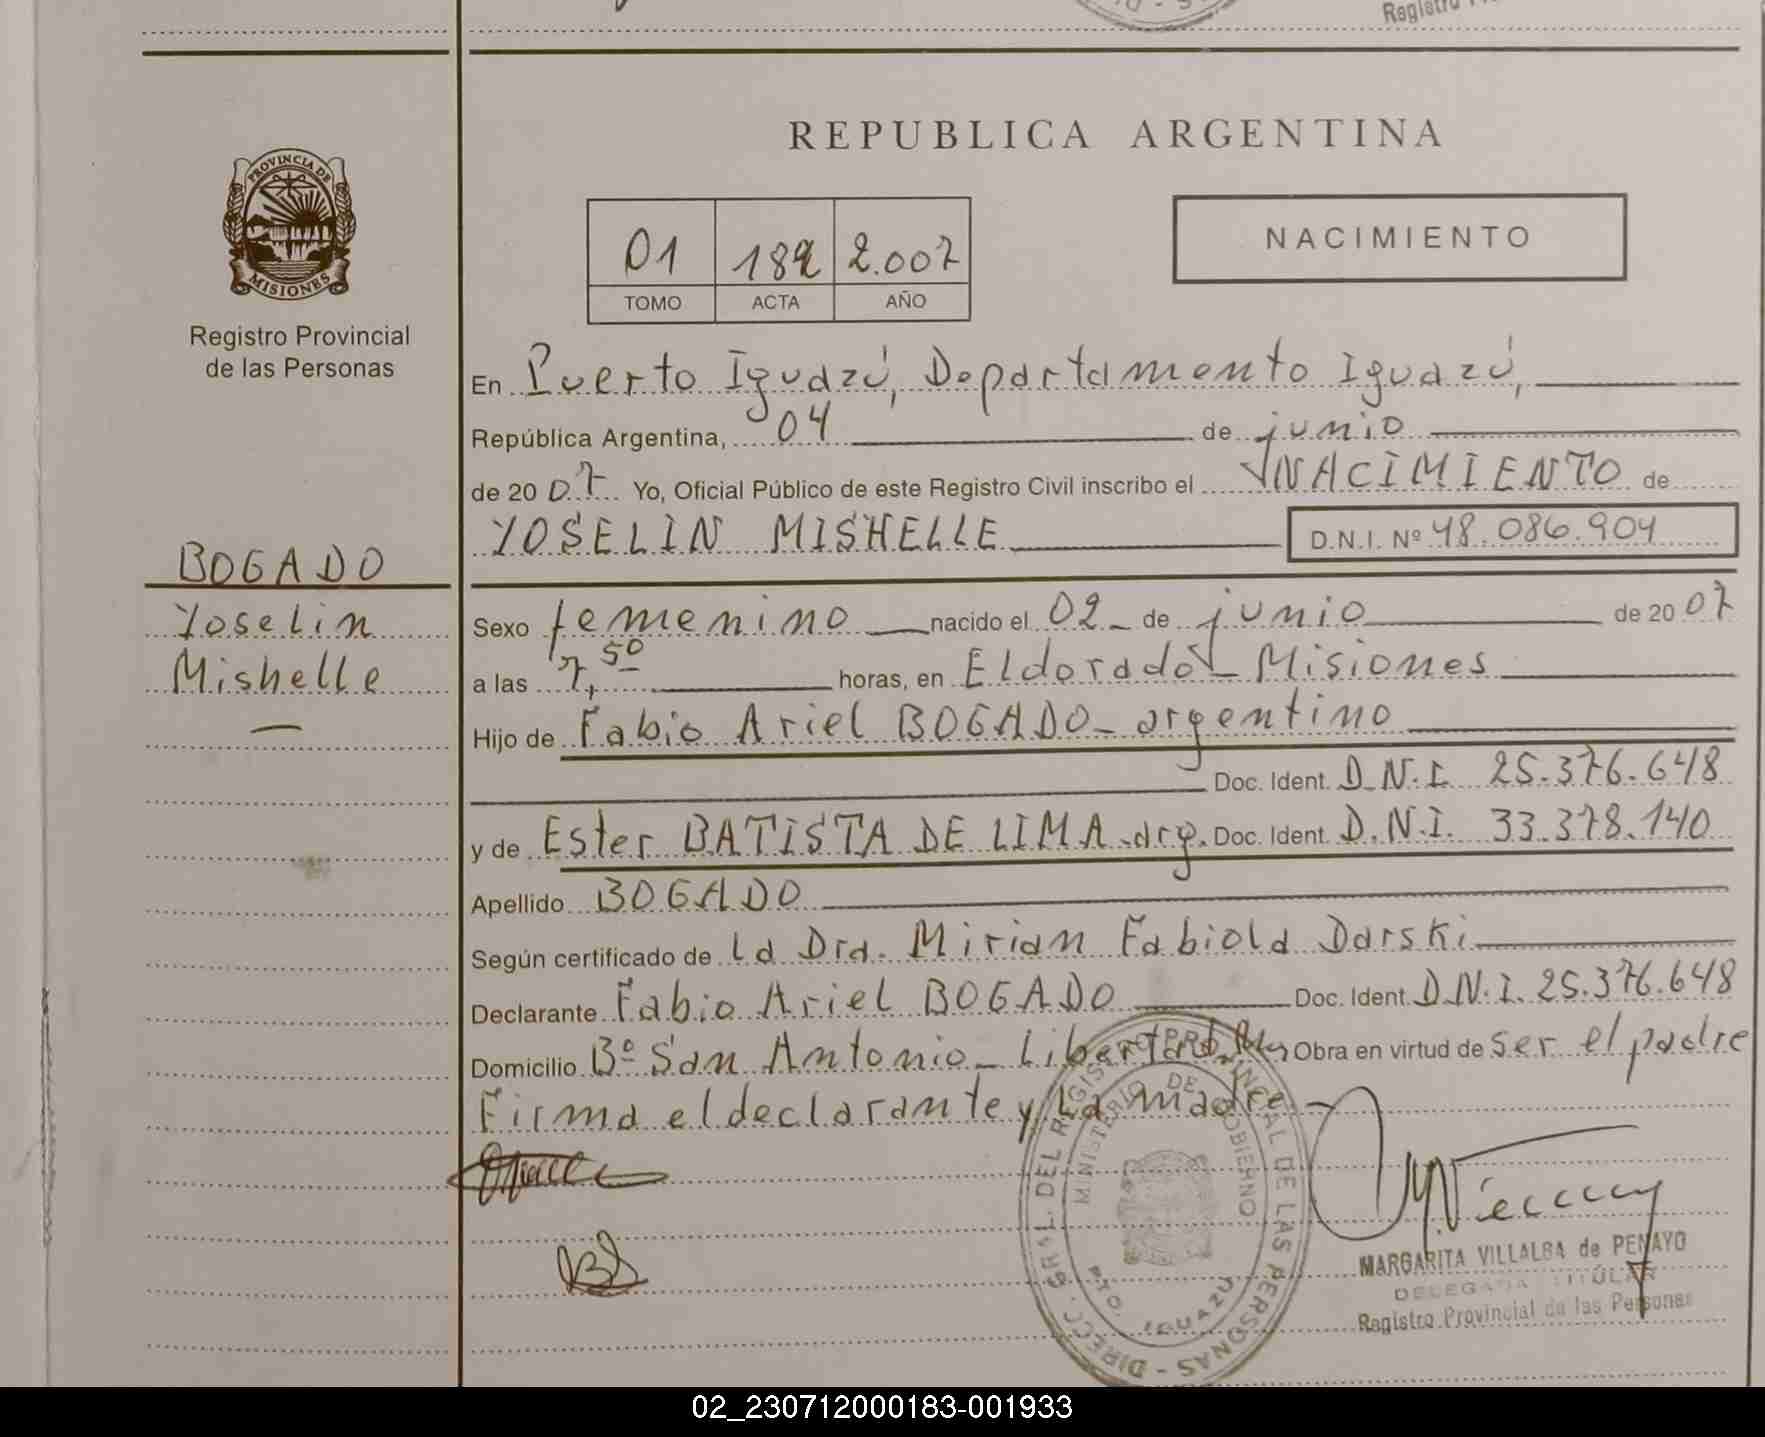 Registro
REPUBLICA ARGENTINA
PROVINCIA DE
MISIONES
Registro Provincial
de las Personas
01 189 2.007
TOMO ACTA AÑO
NACIMIENTO
En Puerto Iguazú, Departamento Iguazú,
República Argentina, 04 de junio
de 20 07 Yo, Oficial Público de este Registro Civil inscribo el NACIMIENTO de
YOSELIN MISHELLE D.N.I. Nº 48.086.904
BOGADO
Yoselin
Mishelle
Sexo femenino nacido el 02 de junio de 20 07
a las 7,50 horas, en Eldorado - Misiones
Hijo de Fabio Ariel BOGADO - argentino
Doc. Ident. D.N.I. 25.376.648
y de Ester BATISTA DE LIMA - arg. Doc. Ident. D.N.I. 33.378.140
Apellido BOGADO
Según certificado de La Dra. Mirian Fabiola Darski
Declarante Fabio Ariel BOGADO Doc. Ident. D.N.I. 25.376.648
Domicilio Bº San Antonio - Libertad, Obra en virtud de ser el padre
Firma el declarante y La madre -
DIRECC. GRAL. DEL REGISTRO PROVINCIAL DE LAS PERSONAS -
MINISTERIO DE GOBIERNO
PTO. IGUAZU
MARGARITA VILLALBA de PENAYO
DELEGADA TITULAR
Registro Provincial de las Personas
02_230712000183-001933